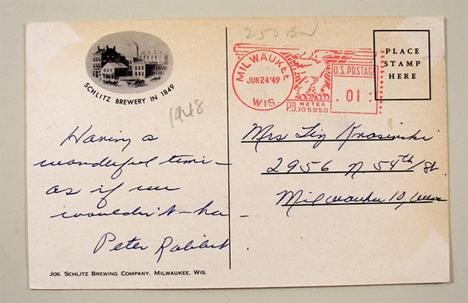 250 Bw
SCHLITZ BREWERY IN 1849
1948
MILWAUKEE
JUN 24 '49
WIS.
U.S. POSTAGE
.01
P.B. METER
105950
PLACE
STAMP
HERE
Having a
wonderful time –
as if we
wouldn't – ha –
Peter Rabbit
Mrs
2956 N. 54th St
Milwaukee 10, Wisc
JOS. SCHLITZ BREWING COMPANY, MILWAUKEE, WIS.